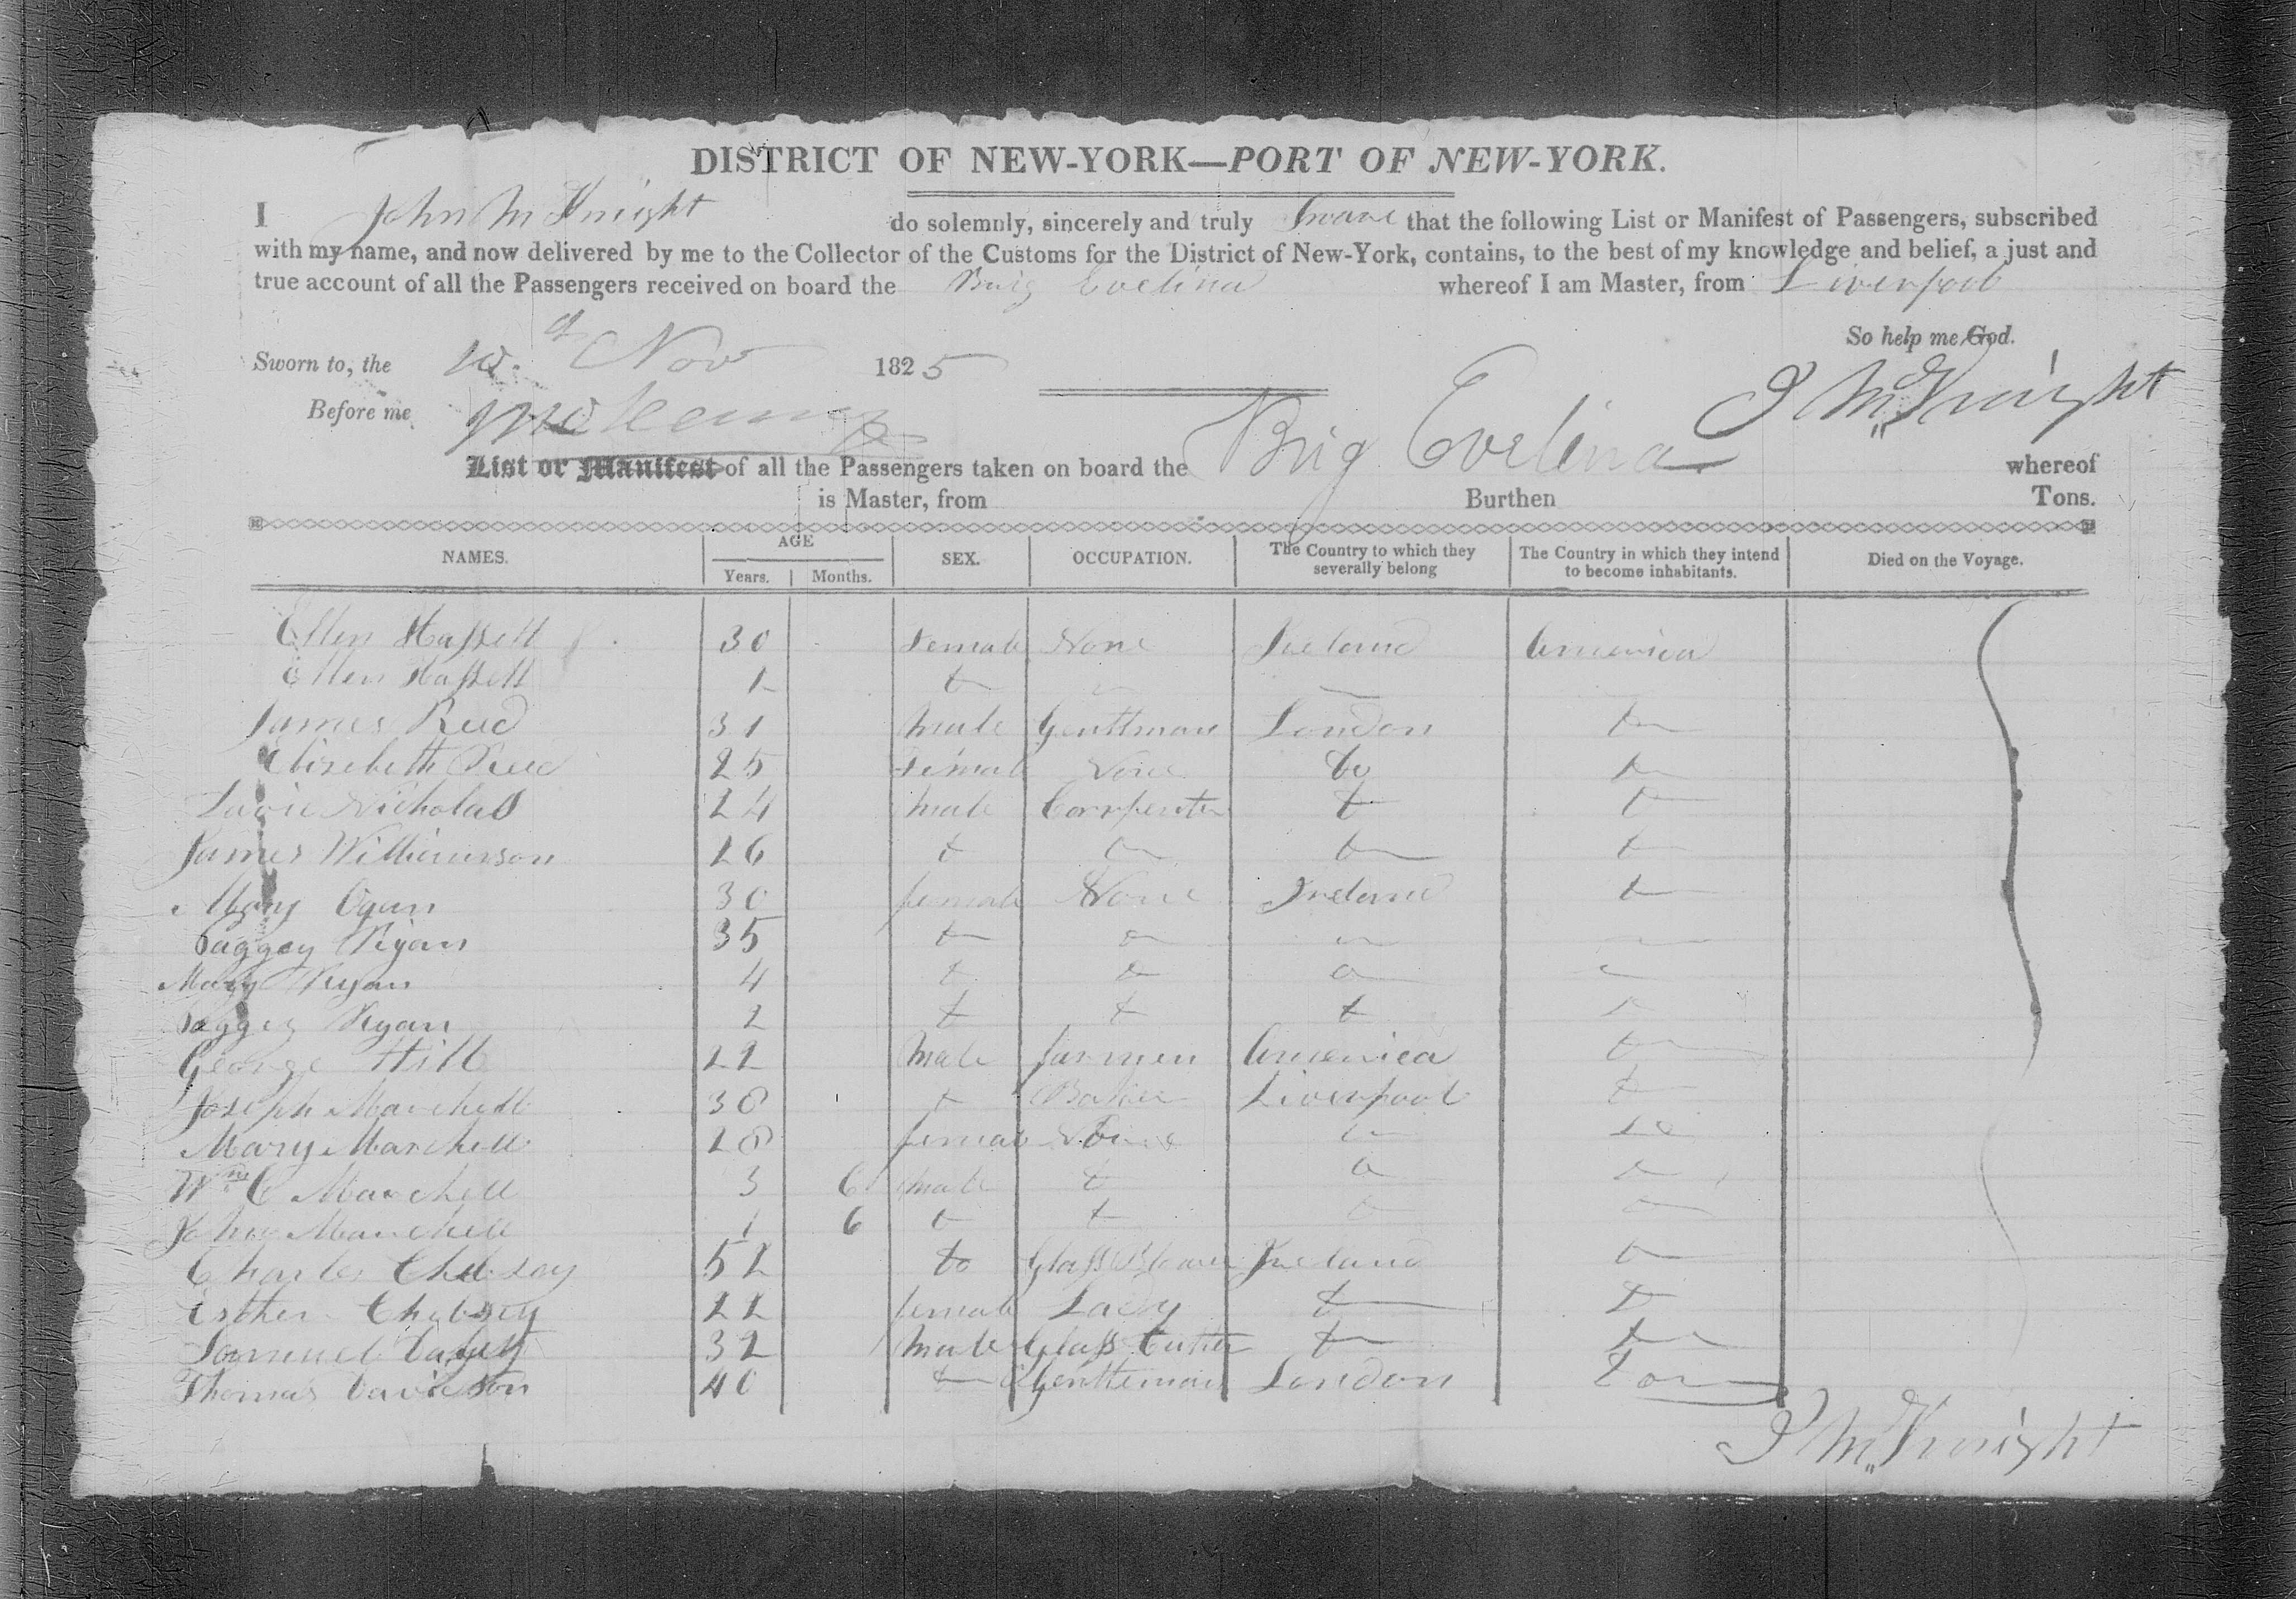 DISTRICT OF NEW-YORK—PORT OF NEW-YORK.
I John McKnight do solemnly, sincerely and truly Swear that the following List or Manifest of Passengers, subscribed
with my name, and now delivered by me to the Collector of the Customs for the District of New-York, contains, to the best of my knowledge and belief, a just and
true account of all the Passengers received on board the Brig Evelina whereof I am Master, from Liverpool
So help me God.
Sworn to, the 10. Nov 1825
J McKnight
Before me
List or Manifest of all the Passengers taken on board the Brig Evelina whereof
is Master, from Burthen Tons.
NAMES. AGE Years. Months. SEX. OCCUPATION. The Country to which they severally belong The Country in which they intend to become inhabitants. Died on the Voyage.
Ellen Hassett 30 Female None Ireland America
Ellen Hassett 1
James Reed 31 Male Gentleman London
Elizebeth Reed 25 Female None Do
Nicholas 24 Male Carpenter
James Williamson 26
Mary 30 female None Ireland
Paggey Ryan 35
Mary Ryan 4
Paggey Ryan 2
George Hill 22 Male farmer America
Joseph Marchell 30 Baker Liverpool
Mary Marchell 28 female None
Wm C Marchell 3 6 male
John Marchell 1 6
Charles 52 Do Glass Blower Ireland
Esther 22 female Lady
Samuel 32 Male Glass Cutter
Thomas Davidson 40 Gentleman London
J McKnight